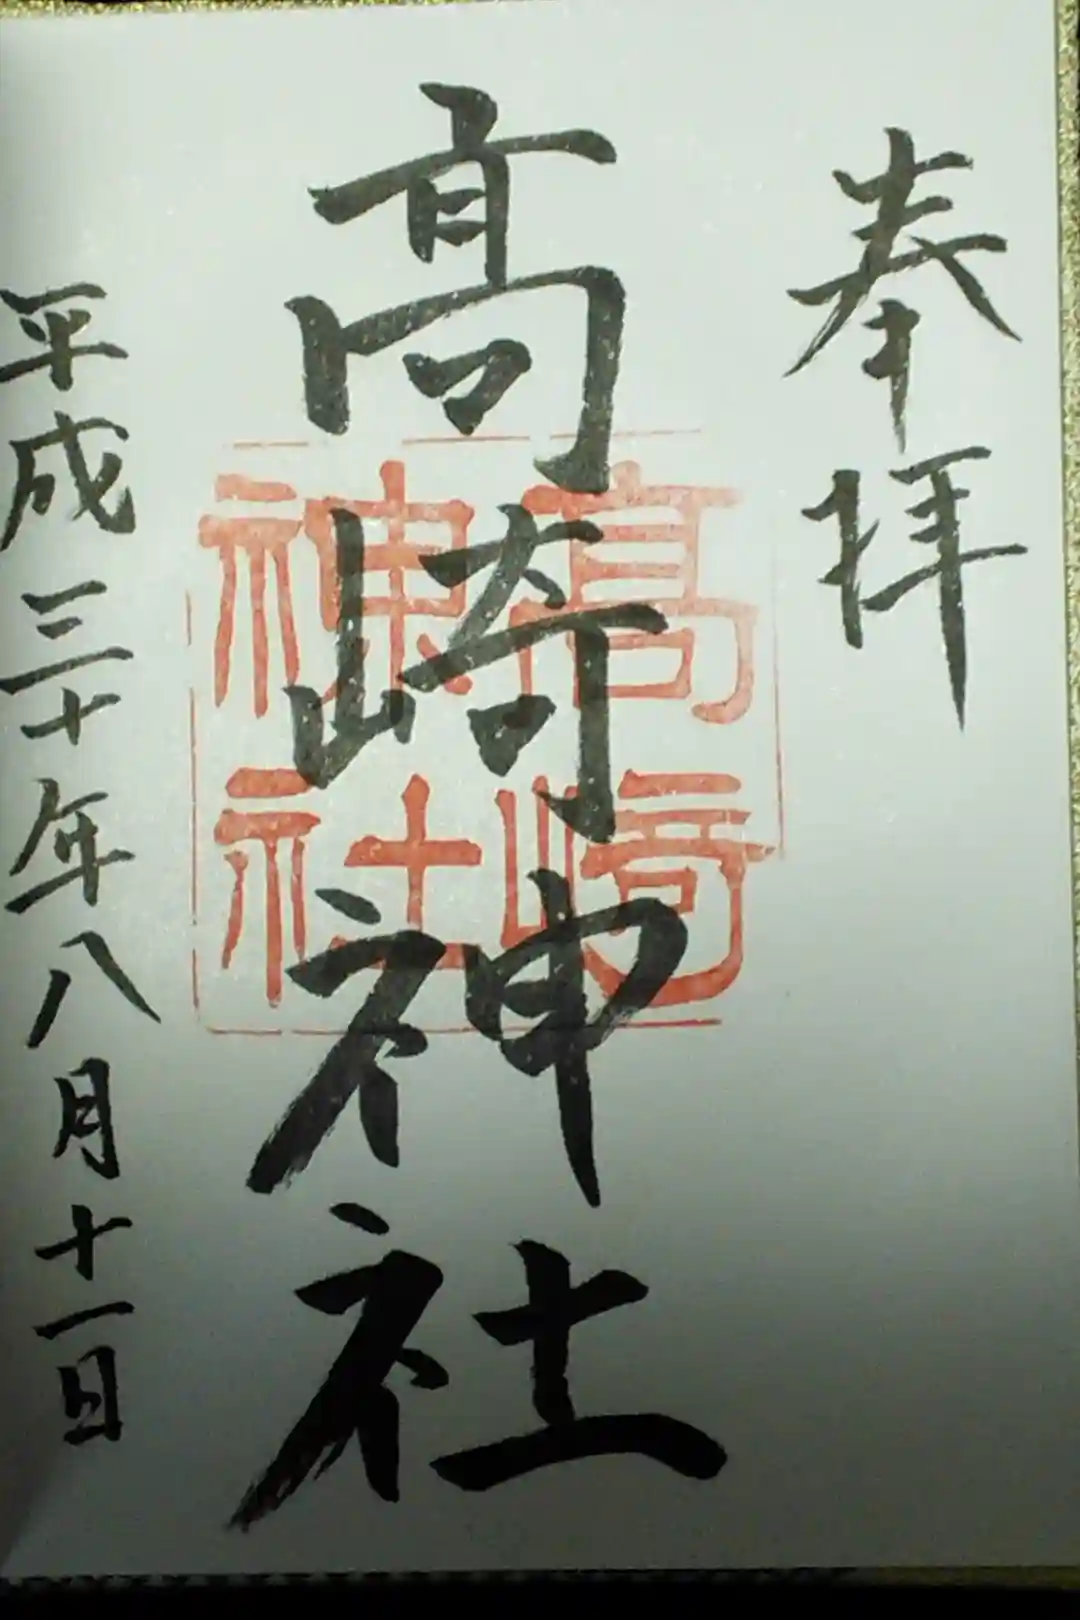 奉拝
高崎神社
高崎神社
平成三十年八月十一日